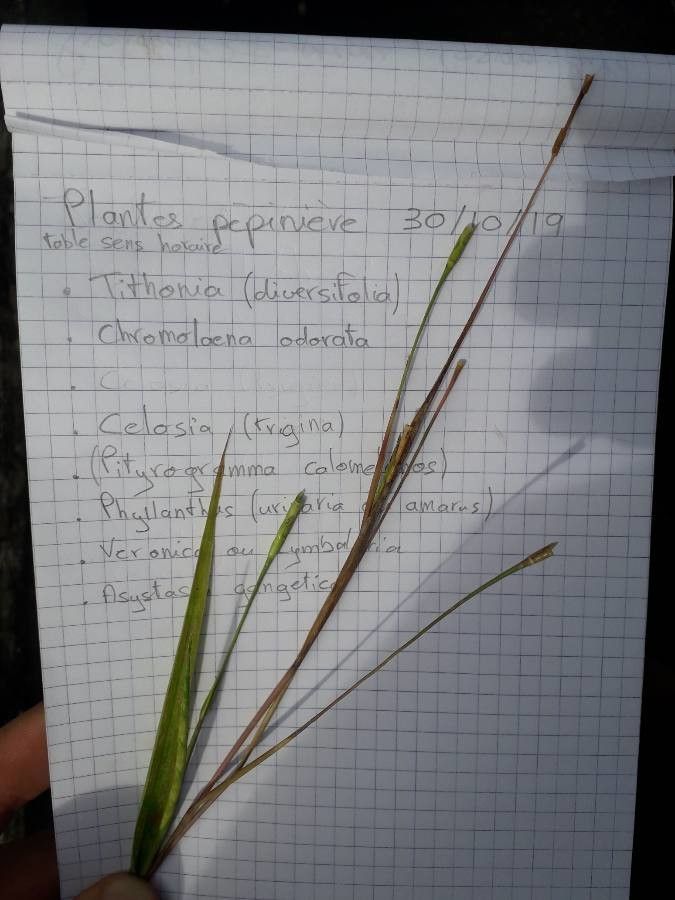 Plantes pépinière 30/10/19
table sens horaire
• Tithonia (diversifolia)
• Chromolaena odorata
• Celosia (trigina)
• (Pityrogramma calomelanos)
• Phyllanthus (urinaria amarus)
• Veronica ou Cymbalaria
• Asystasia gangetica